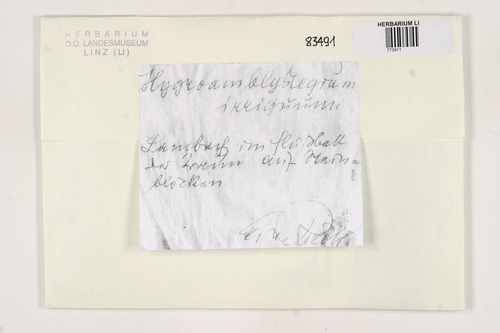 HERBARIUM
O.Ö. LANDESMUSEUM
LINZ (LI)
83491
HERBARIUM LI
Hygroamblystegium
irriguum
Lambach im Flußbett
der Traun auf Stein=
blöcken